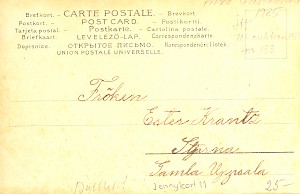 Brefkort. - CARTE POSTALE. - Brevkort.
Postkort. - POST CARD. - Postikortti.
Tarjeta postal. - Postkarte. - Cartolina postale.
Briefkaart - LEVELEZŐ-LAP. - Correspondenzkarte
Dopisnice. - ОТКРЫТОЕ ПИСЬМО. - Korespondenční lístek.
UNION POSTALE UNIVERSELLE.
Fröken
Ester Krantz
Gamla Uppsala
Jennykort 11
25-